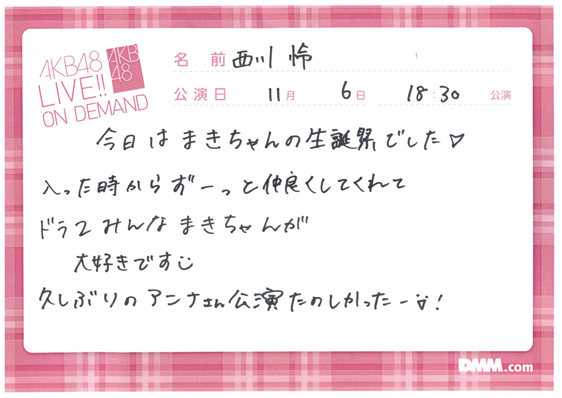 AKB48
LIVE!!
ON DEMAND
AKB
48
名 前 西川 怜
公演日 11月 6日 18:30 公演
今日は まきちゃんの生誕祭でした♡
入った時からずーっと仲良くしてくれて
ドラ2みんな まきちゃんが
大好きです
久しぶりの アンナさん公演 たのしかったー!
DMM.com